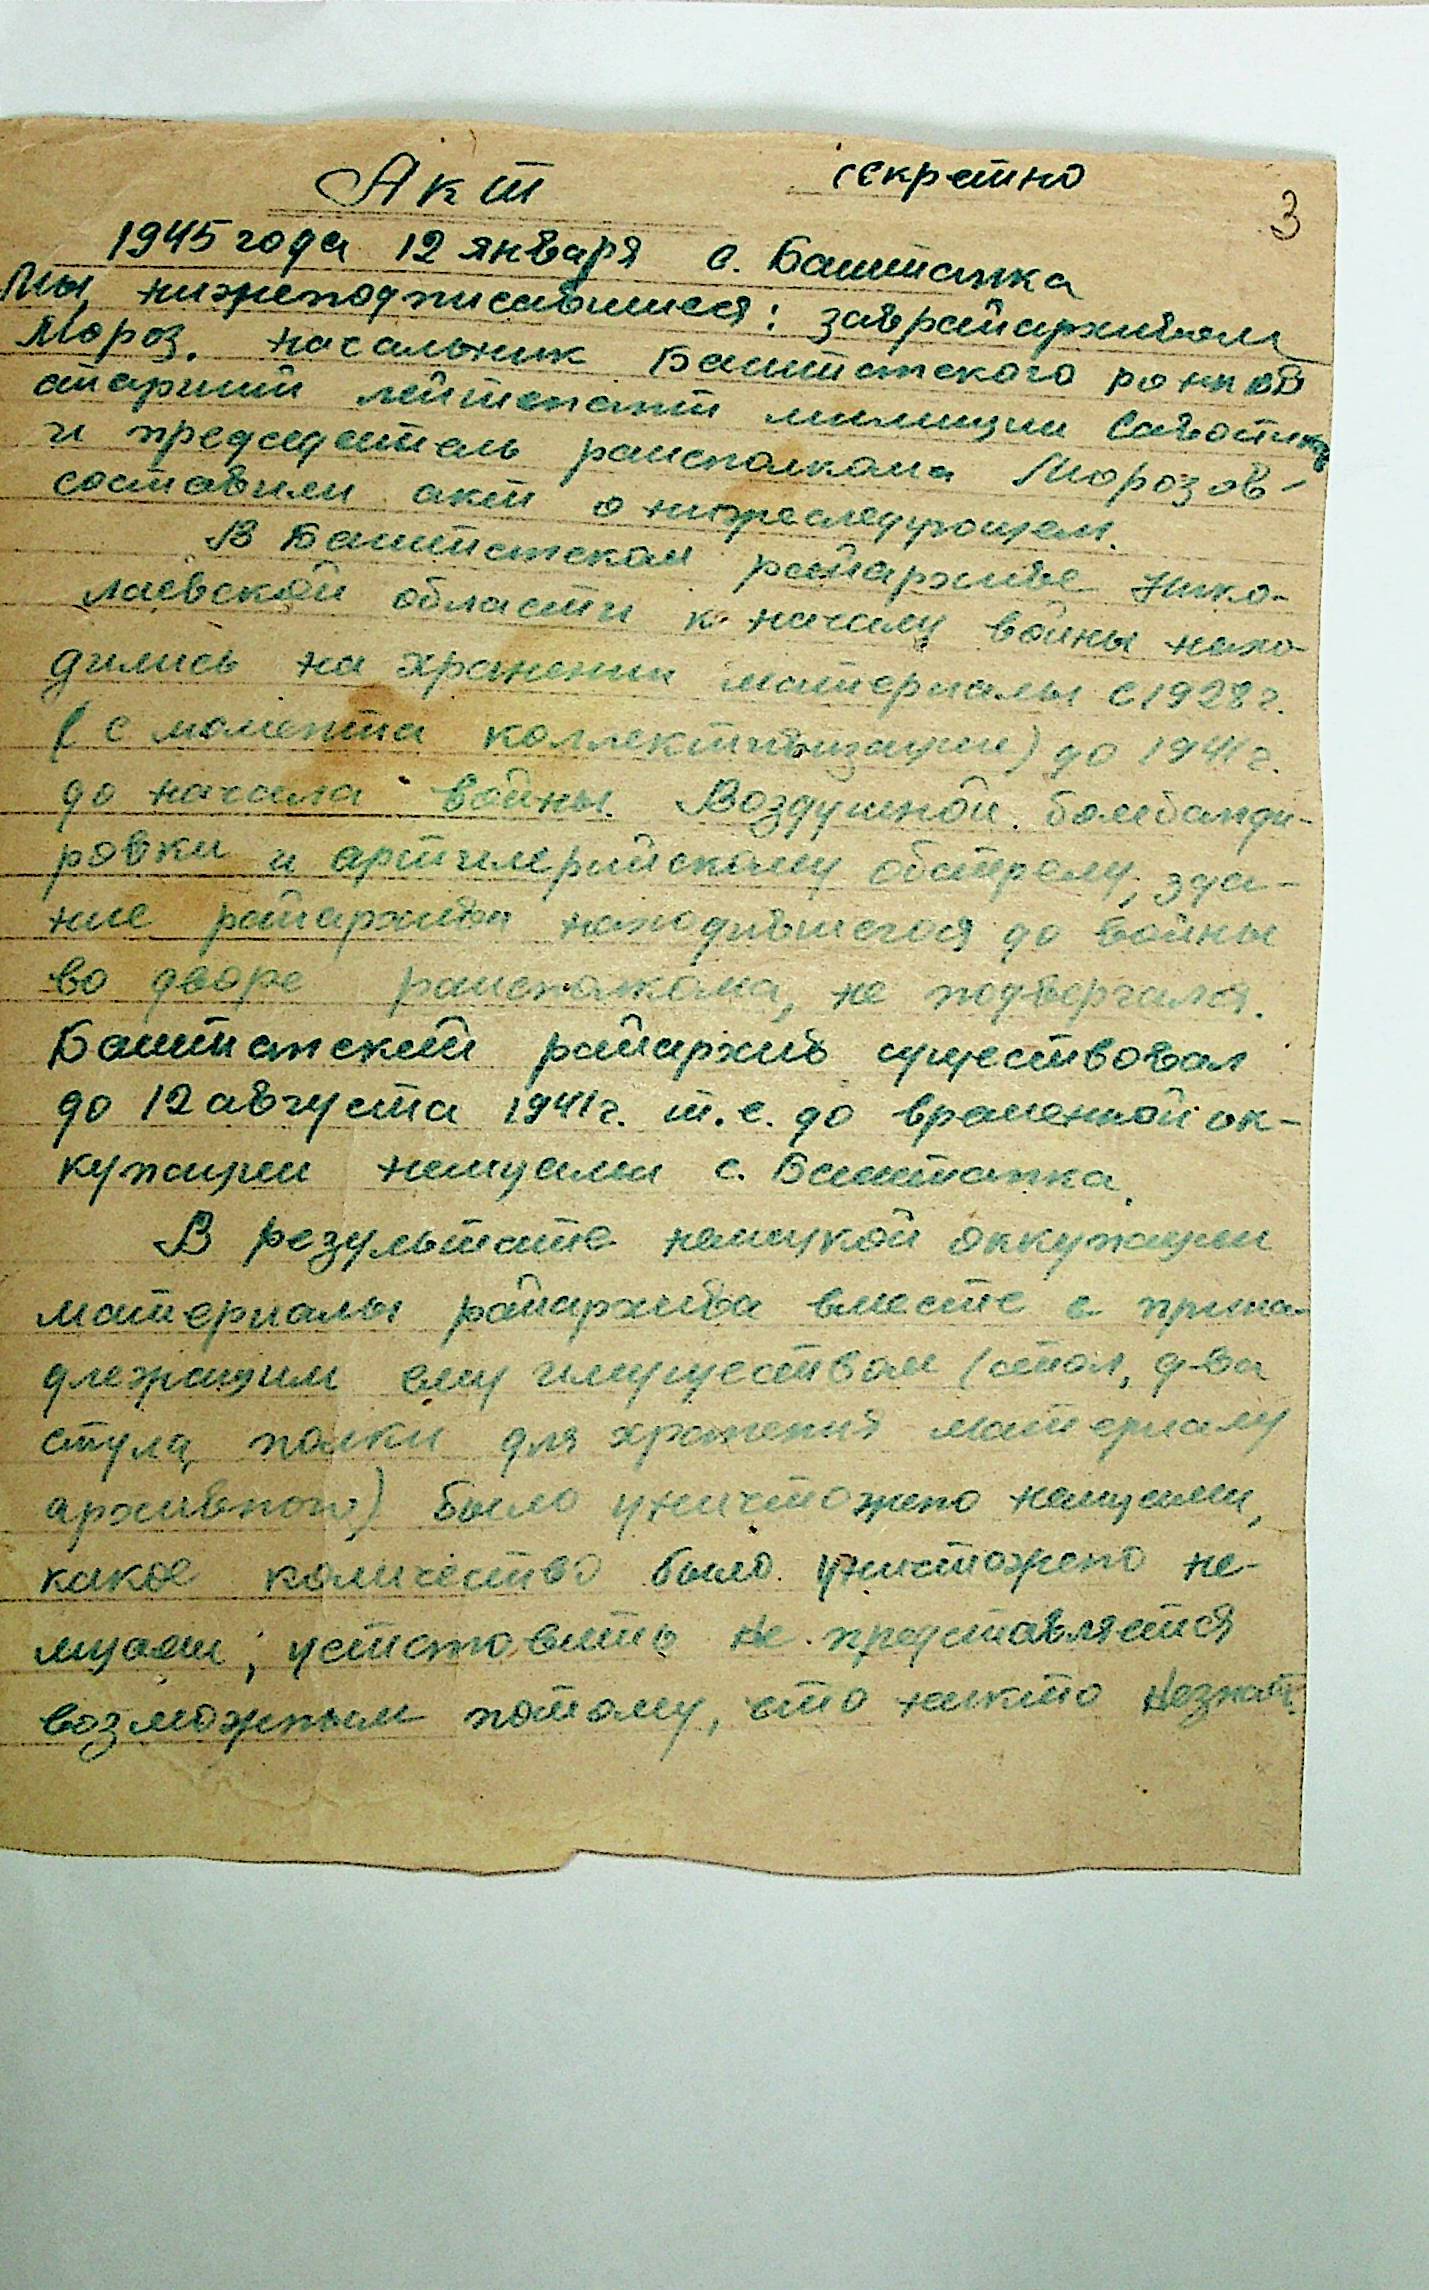 Акт секретно
3
1945 года 12 января с. Баштанка
Мы, нижеподписавшиеся: заврайархивом
Мороз, начальник Баштанского РО НКВД
старший лейтенант милиции
и председатель райсполкома Морозов -
составили акт о нижеследующем.
В Баштанском райархиве Нико-
лаевской области к началу войны нахо-
дились на хранении материалы с 1928 г.
(с момента коллективизации) до 1941 г.
до начала войны. Воздушной бомбанди-
ровки и артилерийскому обстрелу, зда-
ние райархива находившегося до войны
во дворе райсполкома, не подвергался.
Баштанский райархив существовал
до 12 августа 1941 г. т.е. до временной ок-
купации немцами с. Баштанка.
В результате немцкой оккупации
материалы райархива вместе с прина-
длежащим ему имуществом (стол, два
стула, полки для хранения материалу
архивного) было уничтожено немцами,
какое количество было уничтожено не-
мцами; установить не представляется
возможным потому, что никто незнает.